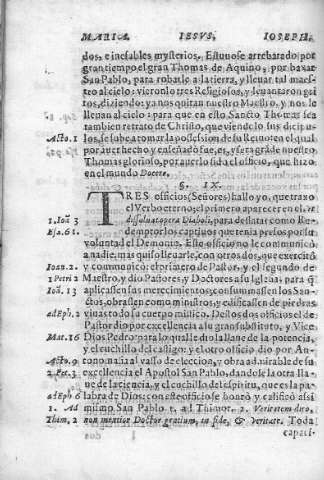 MARIA. IESVS, IOSEPH.
dos, e inefables mysterios. Estuuose arrebatado por
gran tiempo el gran Thomas de Aquino, por baxar
San Pablo, para robarle a la tierra, y lleuar tal maes-
tro al cielo: vieronlo tres Religiosos, y leuantaron gri
tos, diziendo: ya nos quitan nuestro Maestro, y nos le
lleuan al cielo: para que en esto Sancto Thomas sea
tambien retrato de Christo, que viendolo sus dicipu-
Acto. 1 los, se sube a tomar la possession de la
por auer hecho y enseñado fue, es, y sera grãde nuestro
Thomas glorioso, por auerlo sido el officio, que hizo
en el mundo Doctor.
§. IX.
TRES officios (Señores) hallo yo, que traxo
el Verbo eterno; el primero aparecer en el,
1. Ioã 3 dissoluat opera Diaboli, para desatar como Re-
Esa. 61. demptor los captiuos que tenia presos por su
voluntad el Demonio. Este officio no le comunicò
a nadie, mas quiso lleuarle, con otros dos, que exercitò
Ioan. 2. y communicò: el primero de Pastor, y el segundo de
1 Petri 2 Maestro, y dio Pastores y Doctores a su Iglesia, para q̃
Ioã. 13 aplicassen sus merecimientos, consumassen los San-
ctos, obrassen como ministros, y edificassen de piedras
ad Eph. 2 viuas todo su cuerpo mistico. Destos dos officios el de
Pastor dio por excellencia a su gran substituto, y Vice
Mat. 16 Dios Pedro: para lo qual le dio la llaue de la potencia,
y el cuchillo del castigo: y el otro officio dio por An-
Acto. 9 tonomasia al vasso de eleccion, y obra admirable de su
2 Pet. 3 excellencia el Apostol San Pablo, dandole la otra lla-
ue de la ciencia, y el cuchillo del espiritu, que es la pa
ad Eph 6 labra de Dios: con este officio se honrò y calificò assi
1. Ad mismo San Pablo 1. a Thimot. 2. Veritatem dico,
Thim. 2 non mentior Doctor gentium, in fide, & veritate. Toda
capaci-